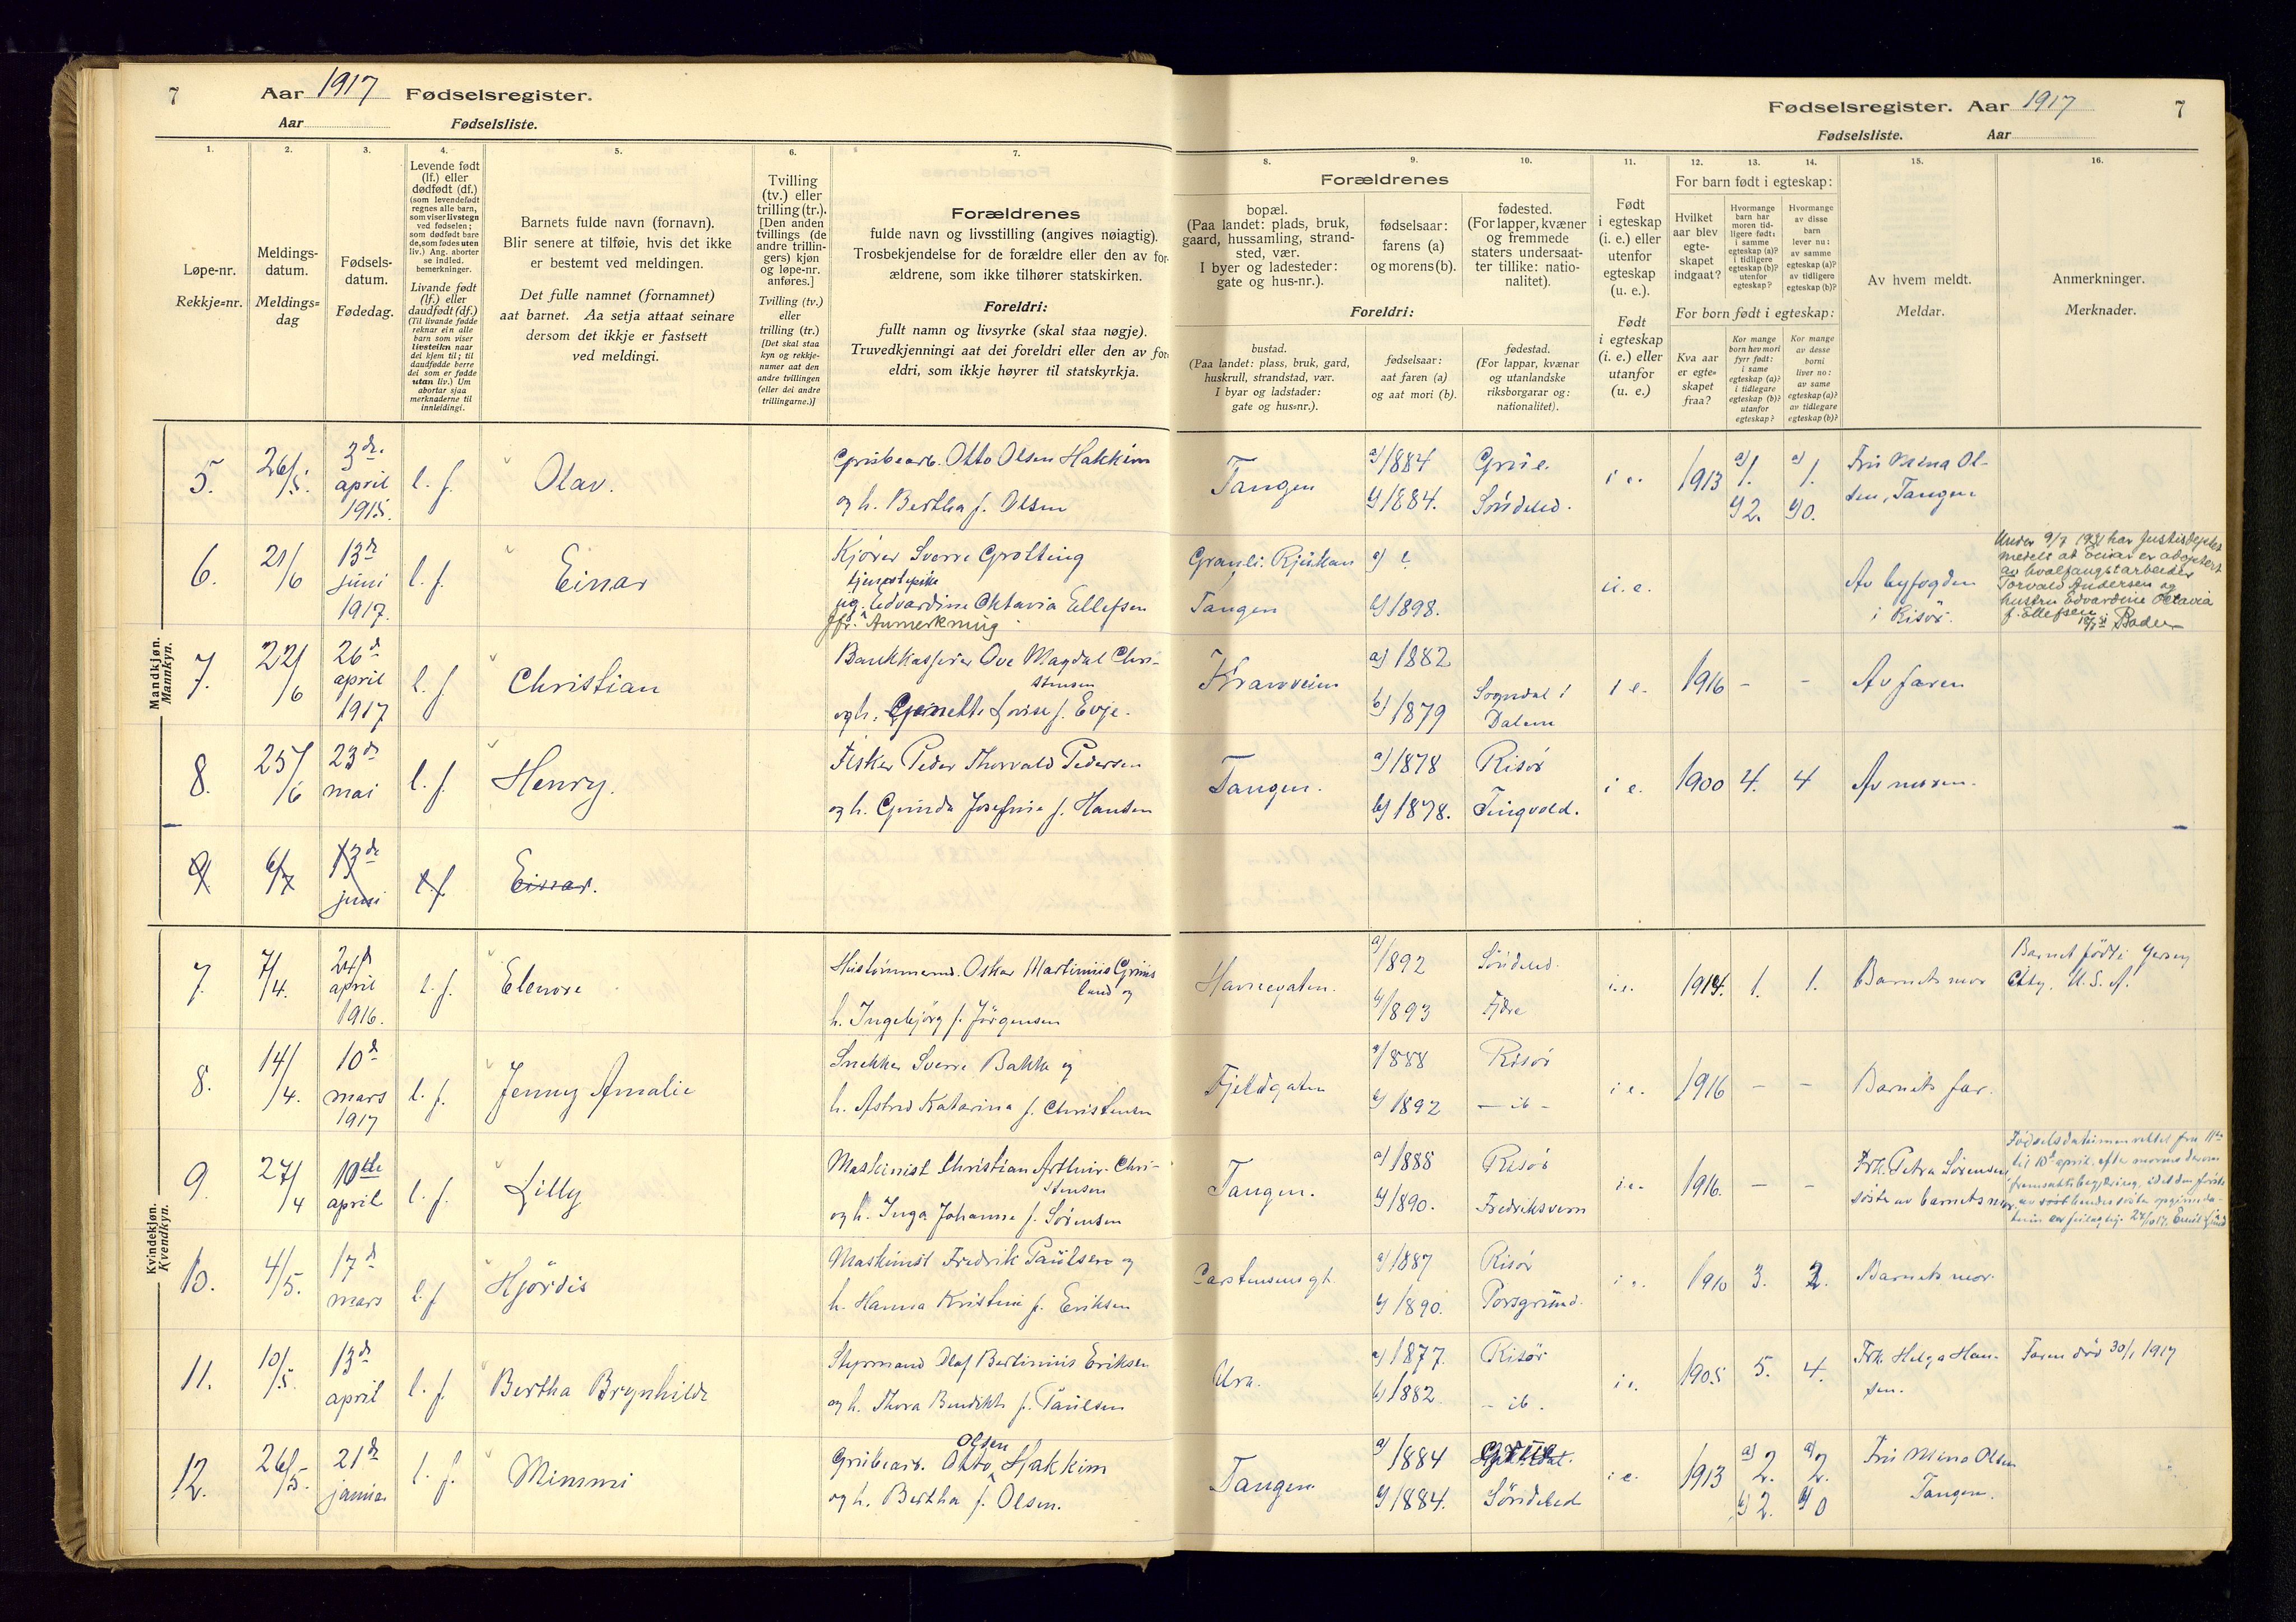 7
Aar 1917 Fødselsregister.
Aar Fødselsliste.
Fødselsregister. Aar 1917
7
Fødselsliste. Aar
1.
Løpe-nr.
Rekkje=nr.
2.
Meldings-
datum.
Meldings=
dag
3.
Fødsels-
datum.
Fødedag.
4.
Levende født
(lf.) eller
dødfødt (df.)
(som levendefødt
regnes alle barn,
som viser livstegn
ved fødselen;
som dødfødt bare
de, som fødes uten
liv.) Ang. aborter
se indled.
bemerkninger.
Livande født
(lf.) eller
daudfødt (df.)
(Til livande fødde
reknar ein alle
barn som viser
livsteikn naar
dei kjem til; til
daudfødde berre
dei som er fødde
utan liv.) Um
abortar sjaa
merknaderne til
innleidingi.
5.
Barnets fulde navn (fornavn).
Blir senere at tilføie, hvis det ikke
er bestemt ved meldingen.
Det fulle namnet (fornamnet)
aat barnet. Aa setja attaat seinare
dersom det ikkje er fastsett
ved meldingi.
6.
Tvilling
(tv.) eller
trilling (tr.).
[Den anden
tvillings (de
andre trillin-
gers) kjøn
og løpe-nr.
anføres.]
Tvilling (tv.)
eller
trilling (tr.)
[Det skal staa
kyn og rekkje-
numer aat den
andre tvillingen
(eller dei andre
trillingarne.)]
7.
Forældrenes
fulde navn og livsstilling (angives nøiagtig).
Trosbekjendelse for de forældre eller den av for-
ældrene, som ikke tilhører statskirken.
Foreldri:
fullt namn og livsyrke (skal staa nøgje).
Truvedkjenningi aat dei foreldri eller den av for-
eldri, som ikkje høyrer til statskyrkja.
Forældrenes
8.
bopæl.
(Paa landet: plads, bruk,
gaard, hussamling, strand-
sted, vær.
I byer og ladesteder:
gate og hus-nr.).
9.
fødselsaar:
farens (a)
og morens (b).
10.
fødested.
(For lapper, kvæner
og fremmede
staters undersaat-
ter tillike: natio-
nalitet).
Foreldri:
bustad.
(Paa landet: plass, bruk, gard,
huskrull, strandstad, vær.
I byar og ladstader:
gate og hus=nr.).
fødselsaar:
aat faren (a)
og aat mori (b).
fødestad.
(For lappar, kvænar
og utanlandske
riksborgarar og:
nationalitet).
11.
Født
i egteskap
(i. e.) eller
utenfor
egteskap
(u. e.).
Født
i egteskap
(i. e.) eller
utanfor
(u. e.)
For barn født i egteskap:
12.
Hvilket
aar blev
egte-
skapet
indgaat?
13.
Hvormange
barn har
moren tid-
ligere født:
i samme
egteskap (a)?
i tidligere
egteskap (b)?
utenfor
egteskap?
14.
Hvormange
av disse
barn
lever nu:
av samme
egteskap (a)?
av tidligere
egteskap (b)?
For born født i egteskap:
Kva aar
er egte=
skapet
fraa?
Kor mange
born hev mori
fyrr født:
i same
egteskap (a)?
i tidlegare
egteskap (b)?
utanfor
egteskap?
Kor mange
av desse
borni
liver no:
av same
egteskap (a)?
av tidlegare
egteskap (b)?
15.
Av hvem meldt.
Meldar.
16.
Anmerkninger.
Merknader.
Mandkjøn.
Mannkyn.
5. 26/5. 3de april 1915. l. f. Olav.
Grubearb. Otto Olsen Hakkim
og h. Bertha f. Olsen
Tangen a) 1884 b) 1884. Grue. Søndeled. i e. 1913 a) 1. b) 2. a) 1. b) 0.
Fru Mina Ol-
sen, Tangen
6. 21/6 13de juni 1917. l. f. Einar
Kjører Sverre Grotting
tjenestepike
ug. Edvardine Oktavia Ellefsen
jfr. Anmerkning
Tangen a) ? b) 1898. u. e.
Av byfogden
i Risør.
av hvalfangstarbeider
Torvald Andersen og
hustru Edvardine Octavia
f. Ellefsen.
7. 22/6 26d april 1917 l. f. Christian
Bankkasserer Ove Magdal Chri-
stensen
og h. Lovise f. Evje.
a) 1882 b) 1879 Sogndal i Dalene i e. 1916 - - Av faren
8. 25/6 23de mai l. f. Henry.
Fisker Peder Thorvald Pedersen
og h. Gunda Josefine f. Hansen
Tangen. a) 1878 b) 1878. Risør Tingvold. i e. 1900 4. 4 Av moren.
9. 6/7 13de juni l. f. Einar.
Kvindekjøn.
Kvendkyn.
7. 7/4. 24d april 1916. l. f. Elenore
h. Ingebjørg f. Jörgensen
Havnegaten. a) 1892 b) 1893 Søndeled. i. e. 1914. 1. 1. Barnets mor
Barnet født i Jersey
City. U. S. A.
8. 14/4. 10d mars 1917 l. f. Jenny Amalie
Snekker Sverre Bakke og
h. Astrid Katarina f. Christensen
Fjeldgaten a) 1888 b) 1892 Risør - ib - i e. 1916 - - Barnets far.
9. 27/4 10de april l. f. Lilly
Maskinist Christian Arthur Chri-
stensen
og h. Inga Johanne f. Sørensen
Tangen. a) 1888 b) 1890. Risør Fredriksvern i e. 1916. - -
Frk. Petra Sørensen
søster av barnets mor.
10. 4/5. 17d mars l. f. Hjördis
Maskinist Fredrik Paulsen og
h. Hanna Kristine f. Eriksen
Carstensens gt. a) 1887 b) 1890. Risør Porsgrund. i e. 1910 3. 2. Barnets mor.
11. 10/5. 13de april l. f. Bertha Brynhilde
Styrmand Olaf Bertinius Eriksen
og h. Thora Bendikte f. Paulsen
Ura. a) 1877. b) 1882 Risør - ib. i e. 1905 5. 4.
Frk. Helga Han-
sen.
Faren død 30/1 1917
12. 26/5. 21de januar l. f. Mimmi
Grubearb. Otto Olsen Hakkim
og h. Bertha f. Olsen.
Tangen. a) 1884 b) 1884. Søndeled i e. 1913 a) 2. b) 2. a) 2. b) 0
Fru Mina Olsen
Tangen.